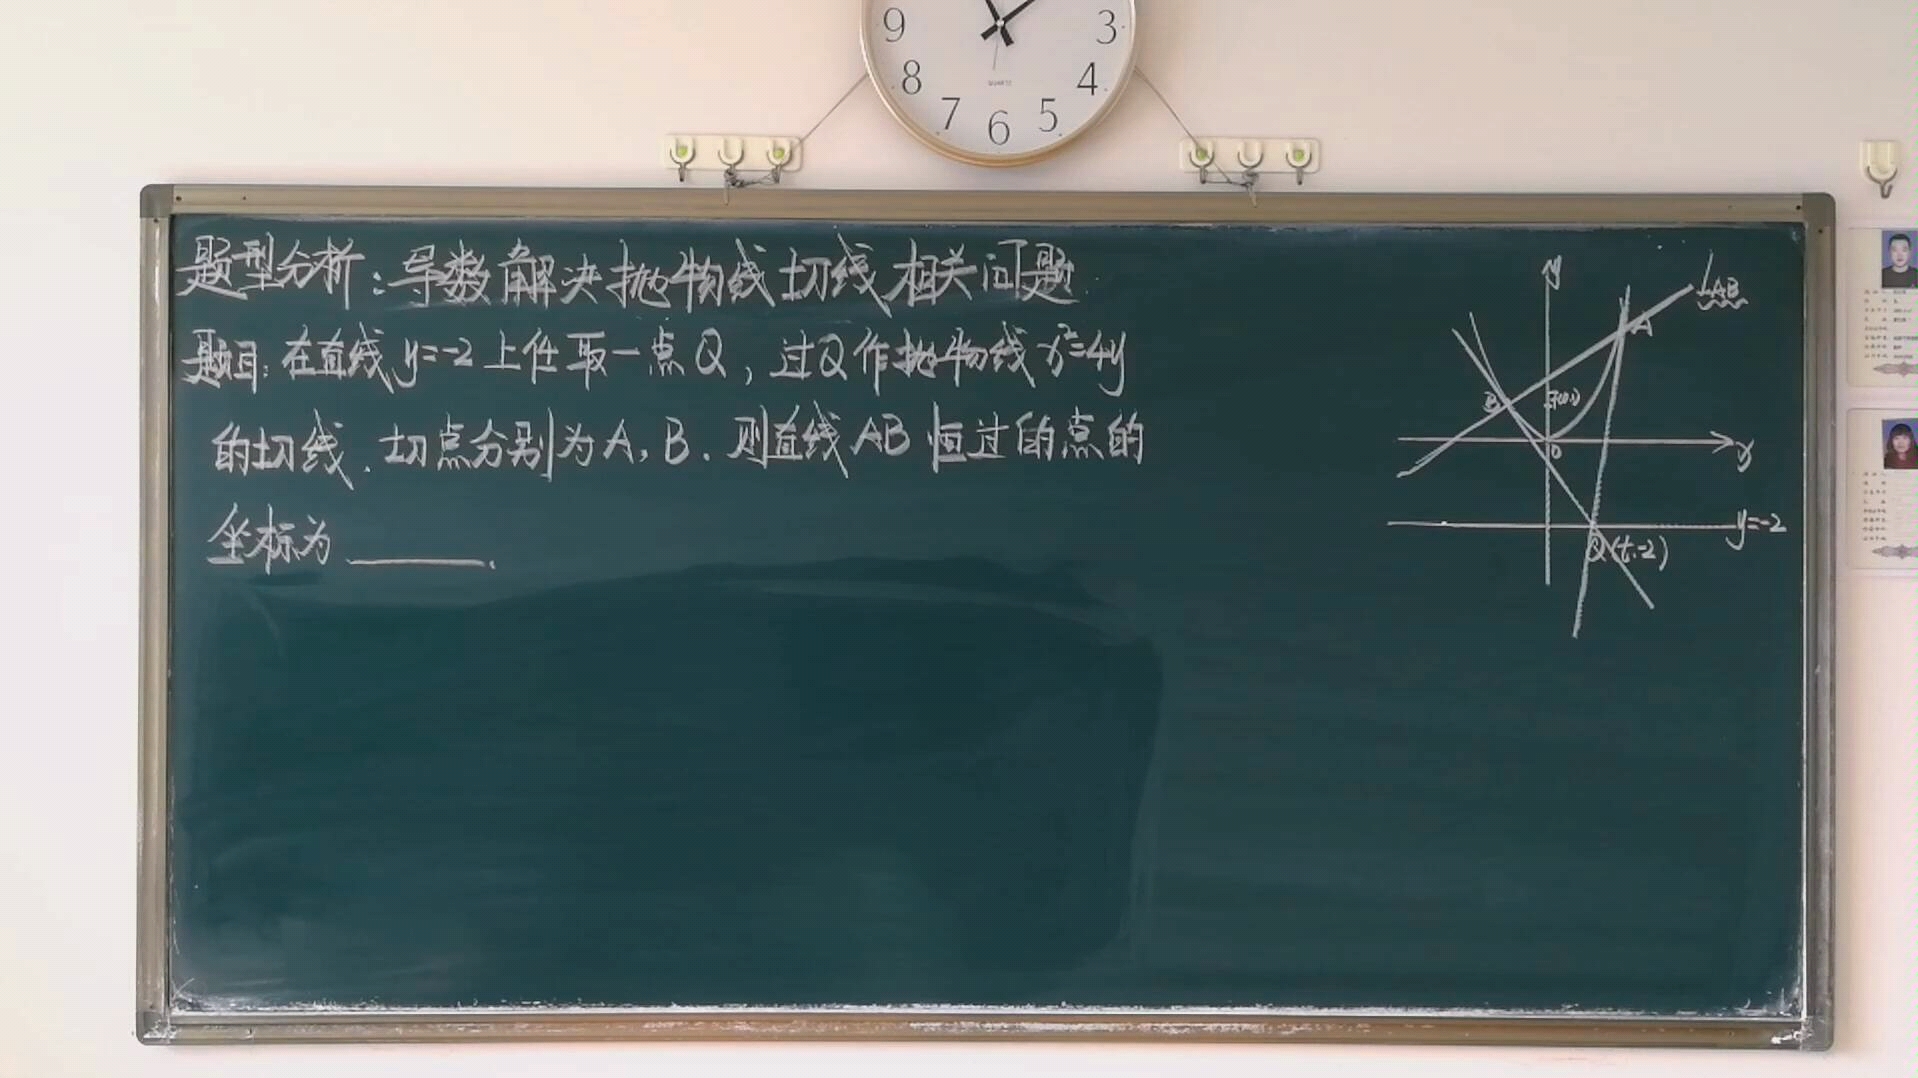 9
3
8
4
7
5
6
QUARTZ
题型分析：导数解决抛物线切线相关问题.
题目：在直线y=-2上任取一点Q，过Q作抛物线x²=4y
的切线.切点分别为A，B.则直线AB恒过的点的
坐标为______.
y
LAB
A
B
F(0,1)
0
x
y=-2
Q(t,-2)